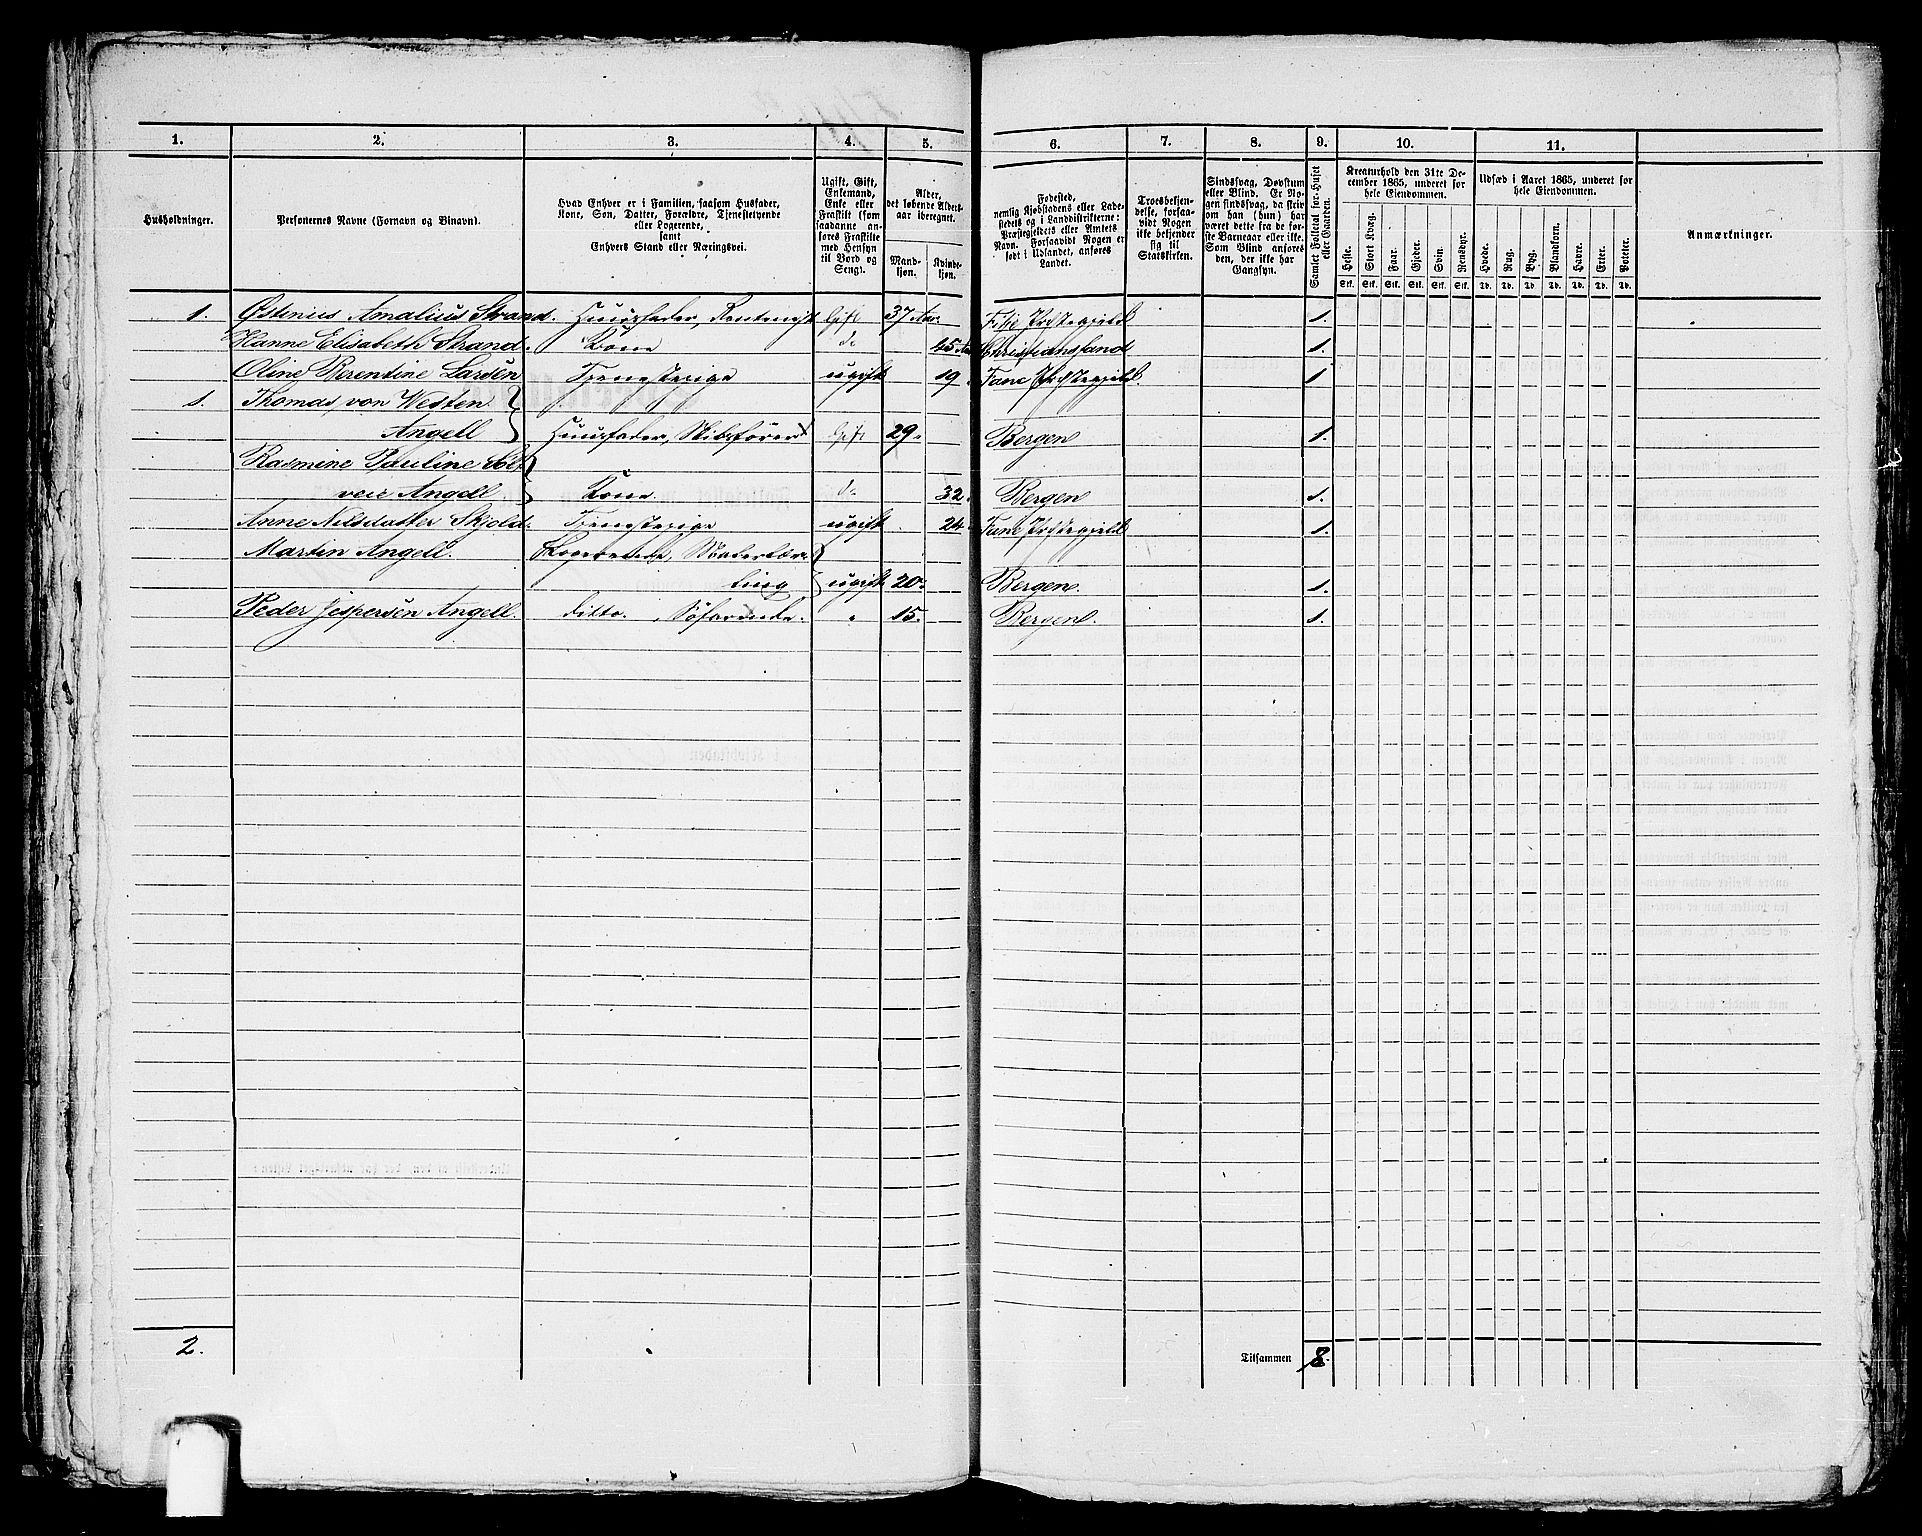 1. 2. 3. 4. 5. 6. 7. 8. 9. 10. 11.
Husholdninger.
Personernes Navne (Fornavn og Binavn).
Hvad Enhver er i Familien, saasom Husfader,
Kone, Søn, Datter, Forældre, Tjenestetyende
eller Logerende,
samt
Enhvers Stand eller Næringsvei.
Ugift, Gift,
Enkemand,
Enke eller
Fraskilt (som
saadanne an-
føres Fraskilte
med Hensyn
til Bord og
Seng).
Alder,
det løbende Alders-
aar iberegnet.
Mand-
kjøn.
Kvinde-
kjøn.
Fødested,
nemlig Kjøbstadens eller Lade-
stedets og i Landdistrikterne:
Præstegjeldets eller Amtets
Navn. Forsaavidt Nogen er
født i Udlandet, anføres
Landet.
Troesbekjen-
delse, forsaa-
vidt Nogen
ikke bekjender
sig til
Statskirken.
Sindssvag, Døvstum
eller Blind. Er No-
gen sindssvag, da skri-
ves om han (hun) har
været dette fra de før-
ste Barneaar eller ikke.
Som Blind anføres
den, der ikke har
Gangsyn.
Samlet Folketal for Huset
eller Gaarden.
Kreaturhold den 31te De-
cember 1865, underet for
hele Eiendommen.
Heste. Stort Kvæg. Faar. Gjeder. Svin. Rensdyr.
Stk. Stk. Stk. Stk. Stk. Stk.
Udsæd i Aaret 1865, underet for
hele Eiendommen.
Hvede. Rug. Byg. Blandkorn. Havre. Erter. Poteter.
Td. Td. Td. Td. Td. Td. Td.
Anmærkninger.
1. Østinius Amalius Strand. Huusfader, Gift 37 Aar. Præstegjeld 1.
Hanne Elisabeth Strand. Kone do 45 Aar Christiansand 1.
Oline Berentine Larsen Tjenestepige ugift 19 Fane Præstegjeld. 1
1. Thomas von Westen
Angell Huusfader, Skibsfører Gift 29. Bergen 1.
Rasmine Pauline
veie Angell Kone. do 32. Bergen 1.
Anne Nilsdatter Skjold. Tjenestepige ugift 24 Fane Præstegjeld 1.
Martin Angell. Logerende,
ling ugift 20. Bergen. 1.
Peder Jespersen Angell. ditto. , Søfarende. " 15. Bergen. 1.
2. Tilsammen 8.